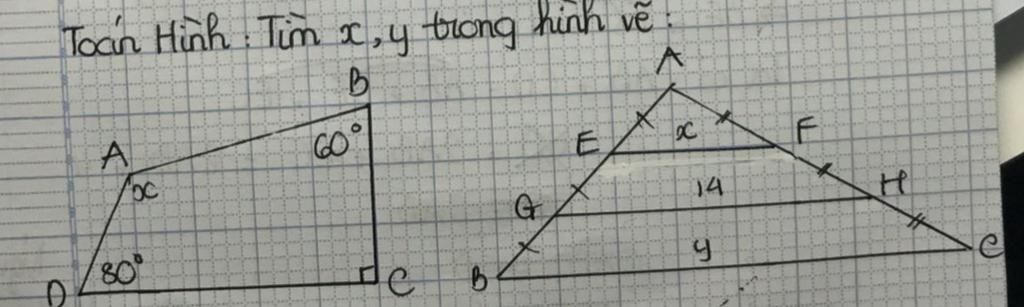 Toán Hình : Tìm x, y trong hình vẽ :
B
60°
A
x
80°
D
C
A
E
x
F
G
14
H
B
y
C